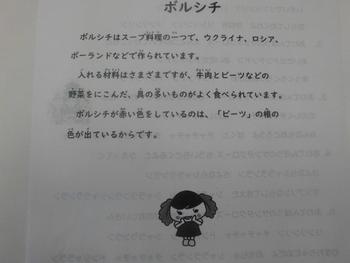 ボルシチ
ボルシチはスープ料理の一つで、ウクライナ、ロシア、
ポーランドなどで作られています。
入れる材料はさまざまですが、牛肉とビーツなどの
野菜をにこんだ、具の多いものがよく食べられています。
ボルシチが赤い色をしているのは、「ビーツ」の根の
色が出ているからです。